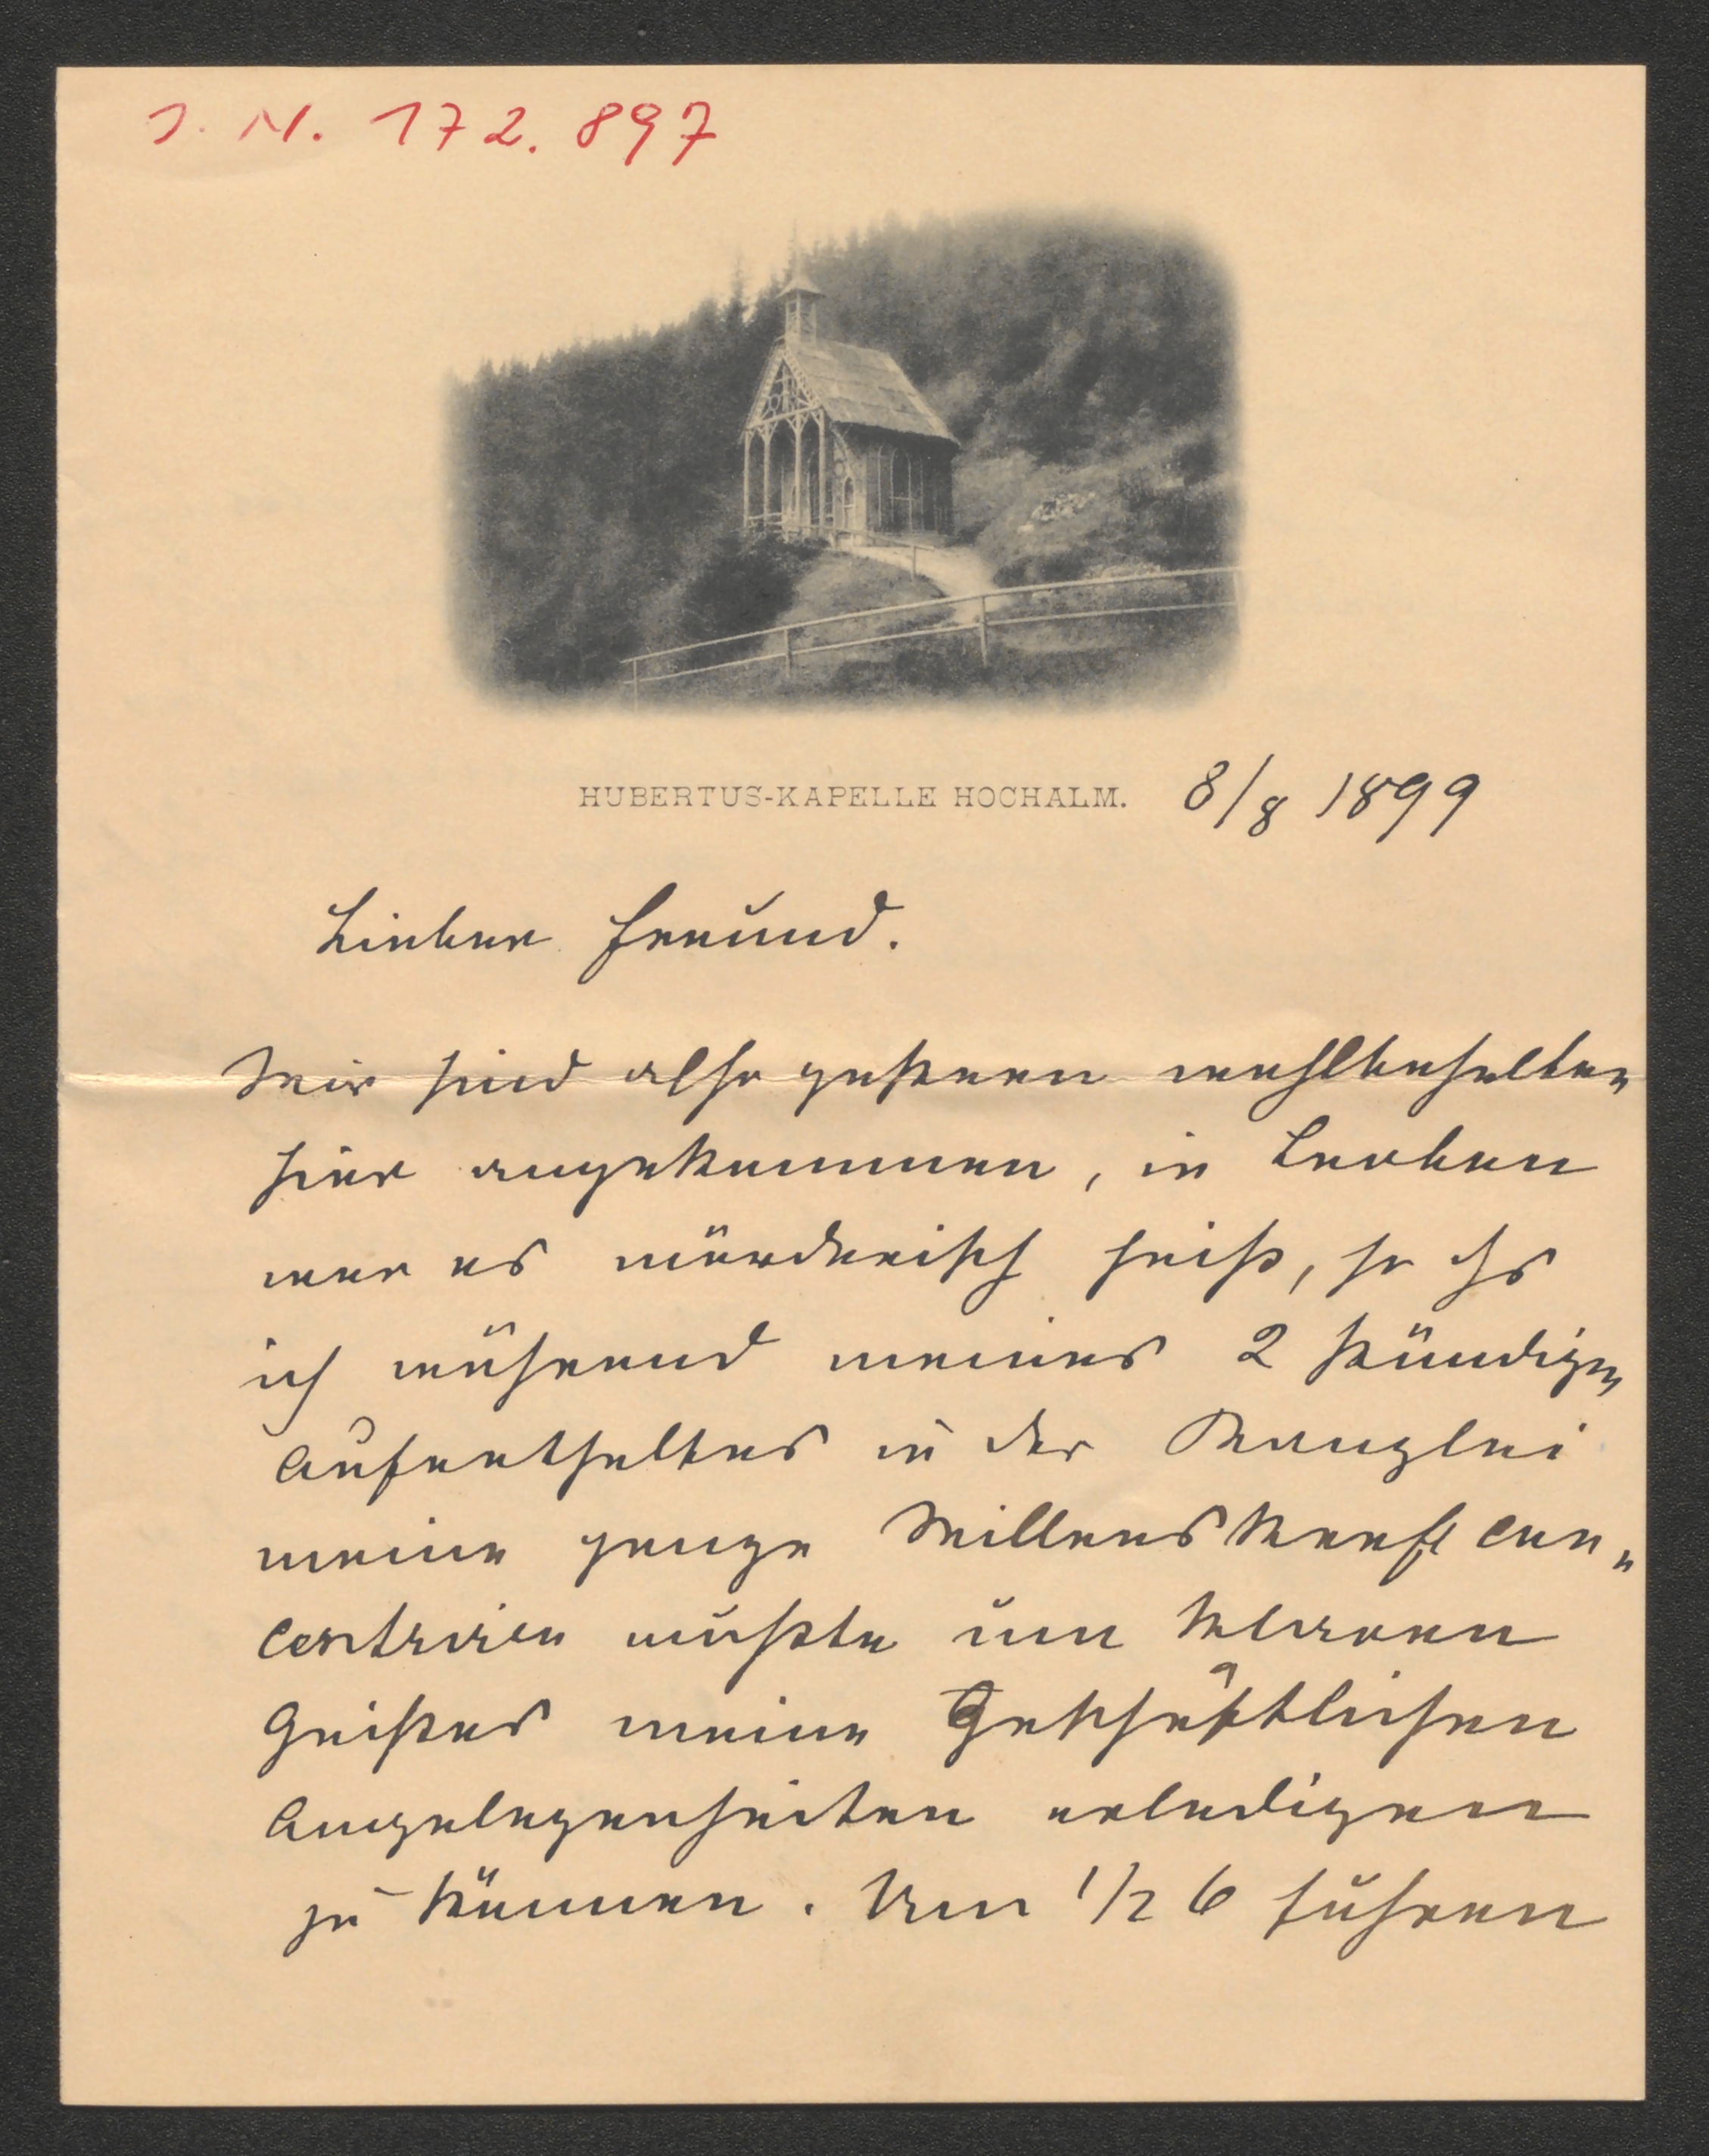 J. N. 172.897
HUBERTUS-KAPELLE HOCHALM. 8/8 1899
Lieber Freund.
Wir sind also gestern wohlbehalten
hier angekommen, in Leoben
war es mörderisch heiß, so dß
ich während meines 2 stündigen
Aufenthaltes in der Kanzlei
meine ganze Willenskraft con„
centriren mußte um klaren
Geistes meine Geschäftlichen
Angelegenheiten erledigen
zu können. Um 1/2 6 fuhren